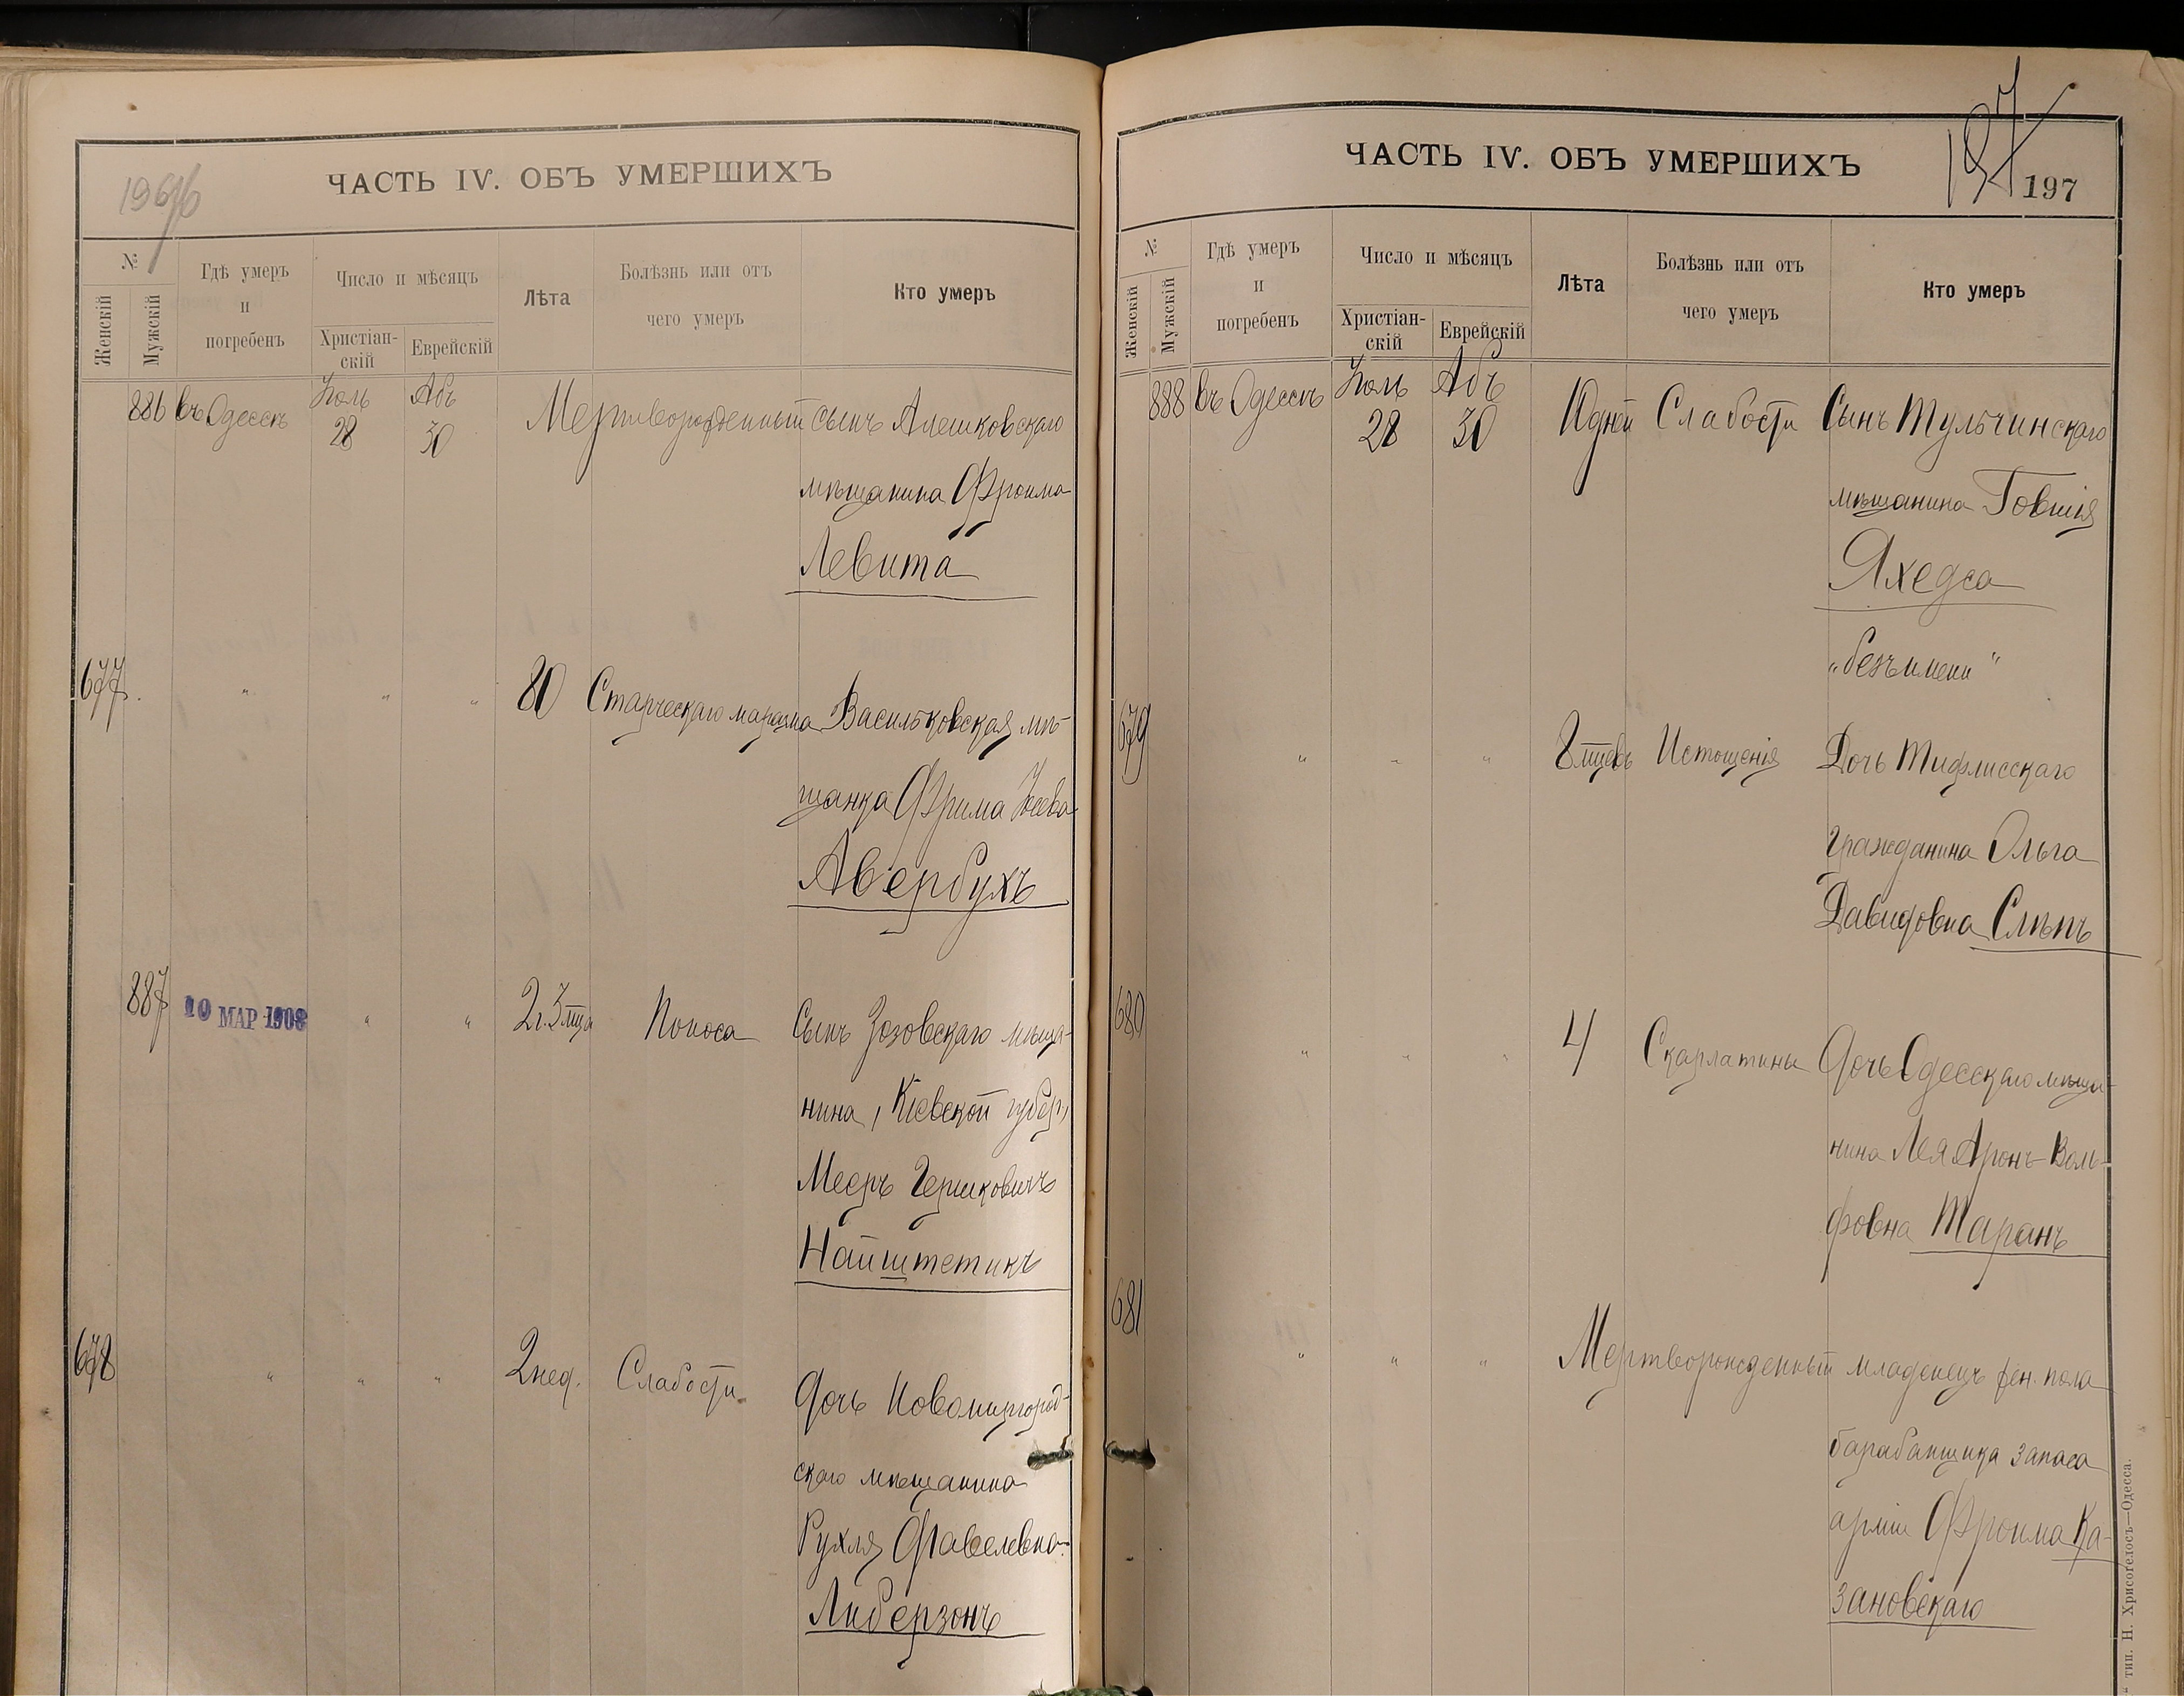 196
ЧАСТЬ IV. ОБЪ УМЕРШИХЪ
№
Женскій
Мужскій
Гдѣ умеръ
и
погребенъ
Число и мѣсяцъ
Христіан-
скій
Еврейскій
Лѣта
Болѣзнь или отъ
чего умеръ
Кто умеръ
886 въ Одессѣ Іюль 28 Абъ 30 Мертворожденный сынъ Алешковскаго
мѣщанина Фроима
Левита
677 " " " 80 Старческаго маразма Васильковская мѣ-
щанка Фрима Іосева
Авербухъ
887 10 МАР 1908 " " 2 г. 3 мца Поноса Сынъ Зозовскаго мѣща-
нина, Кіевской губер,
Мееръ Гершковичъ
Найштетикъ
678 " " " 2 нед. Слабости Дочь Новомиргород-
скаго мѣщанина
Рухля Файвелевна
Либерзонъ
197
ЧАСТЬ IV. ОБЪ УМЕРШИХЪ
197
№
Женскій
Мужскій
Гдѣ умеръ
и
погребенъ
Число и мѣсяцъ
Христіан-
скій
Еврейскій
Лѣта
Болѣзнь или отъ
чего умеръ
Кто умеръ
888 въ Одессѣ Іюль 28 Абъ 30 10 дней Слабости Сынъ Тульчинскаго
мѣщанина Говшія
Яхедса
„безъимени“
679 " " " 8 мцевъ Истощенія Дочь Тифлисскаго
гражданина Ольга
Давидовна Слѣпъ
680 " " " 4 Скарлатины Дочь Одесскаго мѣща-
нина Лея Аронъ-Воль-
фовна Таранъ
681 " " " Мертворожденный младенецъ жен. пола
барабанщика запаса
арміи Фроима Ка-
зановскаго
“ тип. Н. Хрисогелосъ—Одесса.